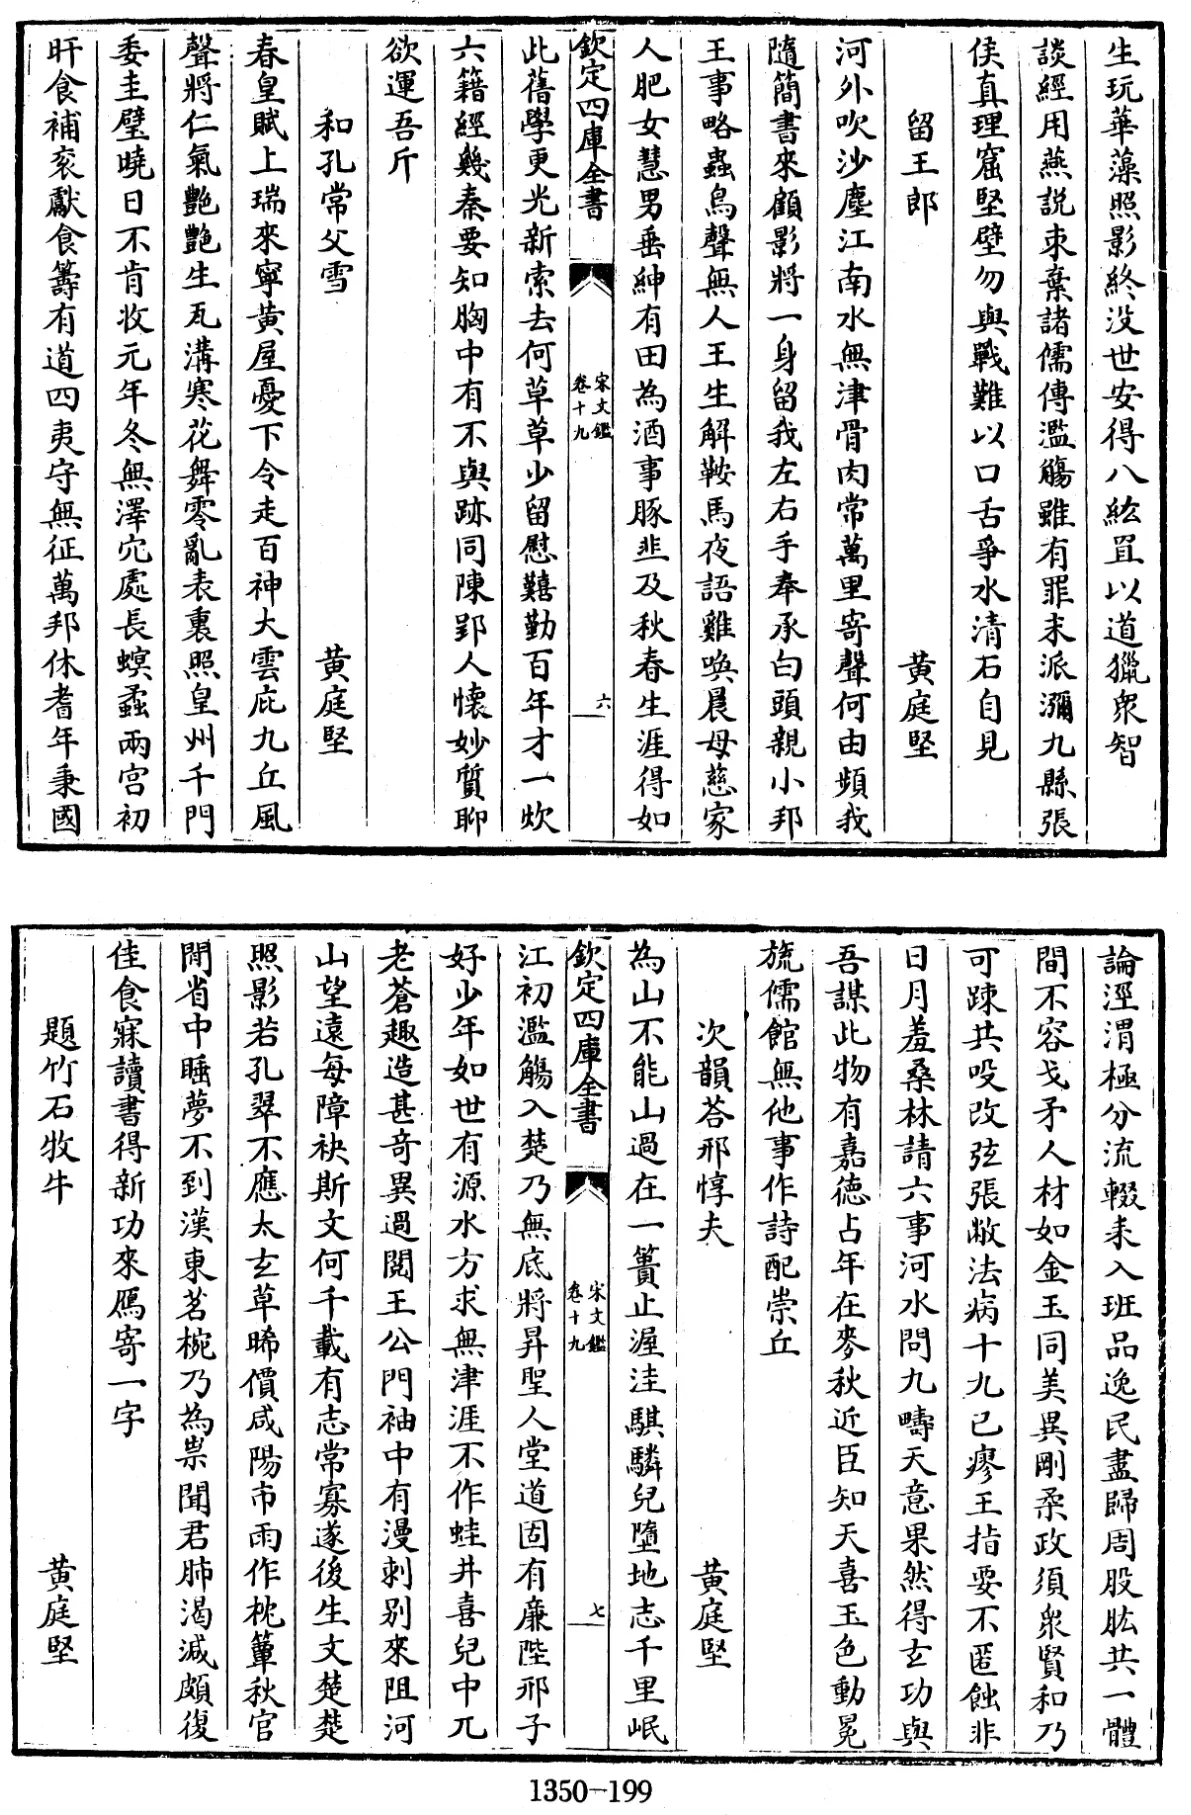 生玩華藻照影終没世安得八紘罝以道獵衆智
談經用燕説束棄諸儒傳濫觴雖有罪末派瀰九縣張
侯真理窟堅壁勿與戰難以口舌爭水清石自見
留王郎　黄庭堅
河外吹沙塵江南水無津骨肉常萬里寄聲何由頻我
隨簡書來顧影將一身留我左右手奉承白頭親小邦
王事略蟲鳥聲無人王生解鞍馬夜語雞喚晨母慈家
人肥女慧男垂紳有田為酒事豚韭及秋春生涯得如
欽定四庫全書　宋文鑑卷十九　六
此舊學更光新索去何草草少留慰囏勤百年才一炊
六籍經幾秦要知胸中有不與跡同陳郢人懷妙質聊
欲運吾斤
和孔常父雪　黄庭堅
春皇賦上瑞來寧黄屋憂下令走百神大雲庇九丘風
聲將仁氣艶艶生瓦溝寒花舞零亂表裏照皇州千門
委圭璧曉日不肯收元年冬無澤穴處長螟蟊兩宫初
旰食補衮獻食籌有道四夷守無征萬邦休耆年秉國
論涇渭極分流輟耒入班品逸民盡歸周股肱共一體
間不容戈矛人材如金玉同美異剛柔政須衆賢和乃
可疎共吺改弦張敝法病十九已瘳王指要不匿蝕非
日月羞桑林請六事河水問九疇天意果然得玄功與
吾謀此物有嘉德占年在麥秋近臣知天喜玉色動冕
旒儒館無他事作詩配崇丘
次韻荅邢惇夫　黄庭堅
為山不能山過在一簣止渥洼騏驎兒墮地志千里岷
欽定四庫全書　宋文鑑卷十九　七
江初濫觴入楚乃無底將昇聖人堂道固有廉陛邢子
好少年如世有源水方求無津涯不作蛙井喜兒中兀
老蒼趣造甚奇異過閲王公門袖中有漫刺别來阻河
山望遠每障袂斯文何千載有志常寡遂後生文楚楚
照影若孔翠不應太玄草晞價咸陽市雨作枕簟秋官
閒省中睡夢不到漢東茗椀乃為祟聞君肺渴減頗復
佳食寐讀書得新功來鴈寄一字
題竹石牧牛　黄庭堅
1350-199